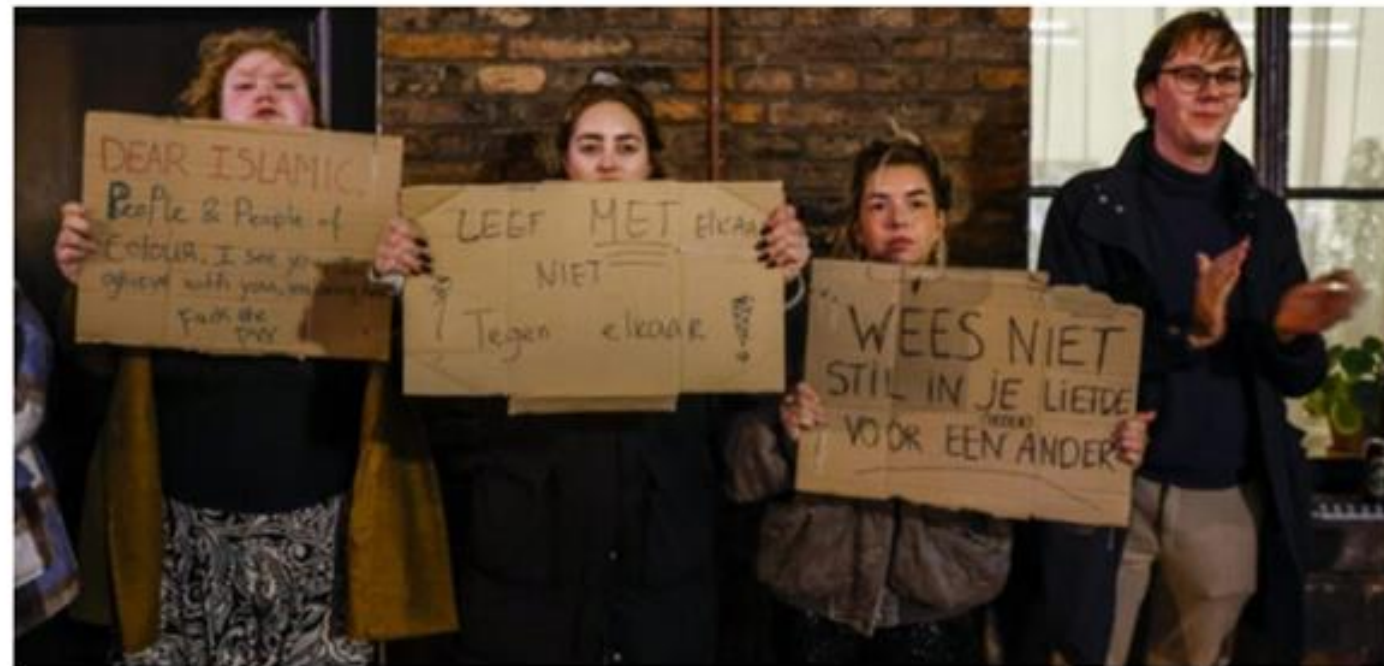 DEAR ISLAMIC.
People & People of
COLOUR, I see you
grieve with you,
Fuck the
PVV
LEEF MET ELKAA
NIET
Tegen elkaar !
WEES NIET
STIL IN JE LIEFDE
VOOR EEN ANDER